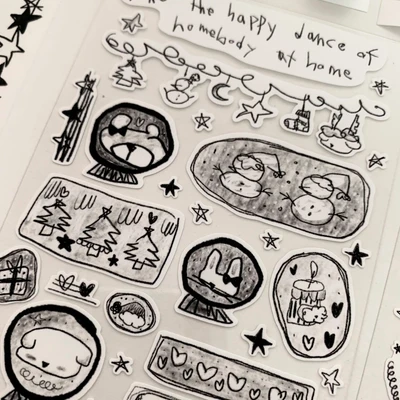 the happy dance of
homebody at home